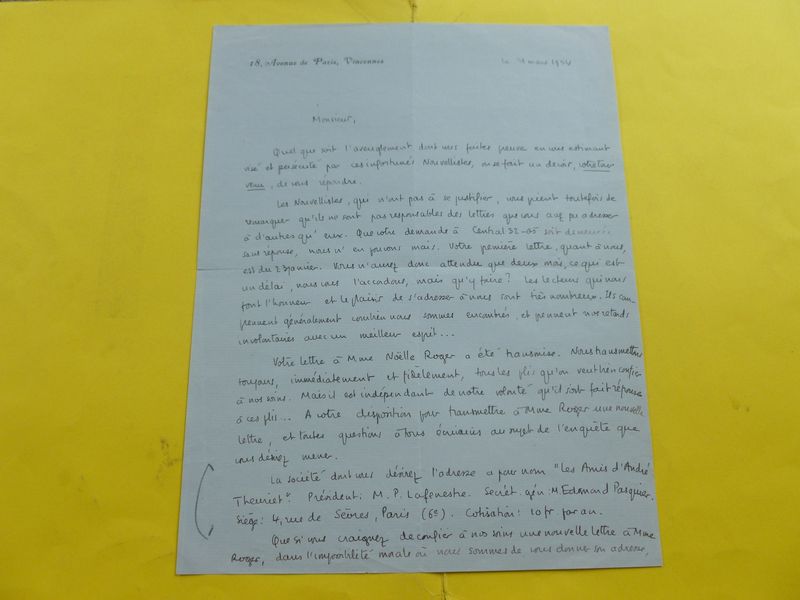 18, Avenue de Paris, Vincennes
le mars 1934
Monsieur,
Quel que soit l'aveuglement dont vous faites preuve en vous estimant
visé et persécuté par ces infortunés Nouvellistes, on se fait un devoir,
vous, de vous répondre.
Les Nouvellistes, qui n'ont pas à se justifier, vous prient toutefois de
remarquer qu'ils ne sont pas responsables des lettres que vous avez pu adresser
à d'autres qu'eux. Que votre demande à Central 32-05 soit demeurée
sans réponse, nous n'en pouvons mais. Votre première lettre, quant à nous,
est du 23 janvier. Vous n'aurez donc attendu que deux mois, ce qui est
un délai, nous vous l'accordons, mais qu'y faire? Les lecteurs qui nous
font l'honneur et le plaisir de s'adresser à nous sont très nombreux. Ils com-
prennent généralement combien nous sommes encombrés, et prennent nos retards
involontaires avec un meilleur esprit...
Votre lettre à Mme Noëlle Roger a été transmise. Nous transmettons
toujours, immédiatement et fidèlement, tous les plis qu'on veut bien confier
à nos soins. Mais il est indépendant de notre volonté qu'il soit fait réponse
à ces plis... A votre disposition pour transmettre à Mme Roger une nouvelle
lettre, et toutes questions à tous écrivains au sujet de l'enquête que
vous désirez mener.
La société dont vous désirez l'adresse a pour nom "Les Amis d'André
Theuriet". Président: M. P. Lafenestre. Secrét. gén: M. Edmond Pasquier.
Siège: 4, rue de Sèvres, Paris (6e). Cotisation: 10 fr. par an.
Que si vous craignez de confier à nos soins une nouvelle lettre à Mme
Roger, dans l'impossibilité morale où nous sommes de vous donner son adresse,